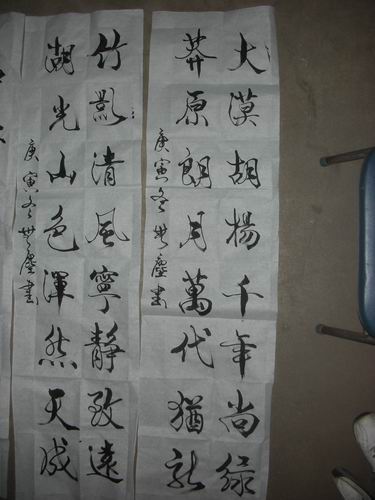 大漠胡揚千年尚綠
莽原朗月萬代猶新
庚寅冬無塵書
竹影清風寧靜致遠
湖光山色渾然天成
庚寅冬無塵書